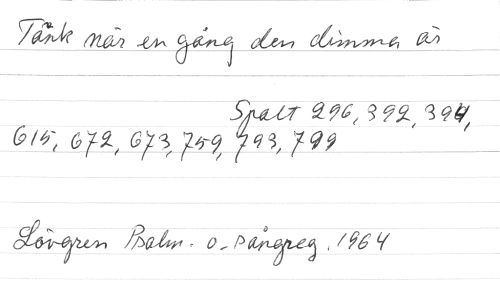 Tänk när en gång den dimma är
Spalt 296, 392, 394,
615, 672, 673, 759, 793, 799
Lövgren Psalm- o. sångreg. 1964